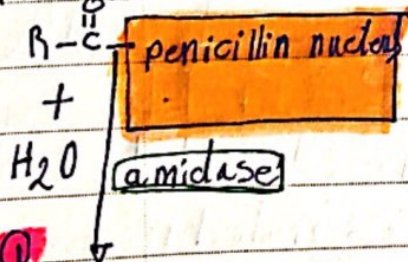 O
R-C-penicillin nucleus
+
H2O
amidase
1